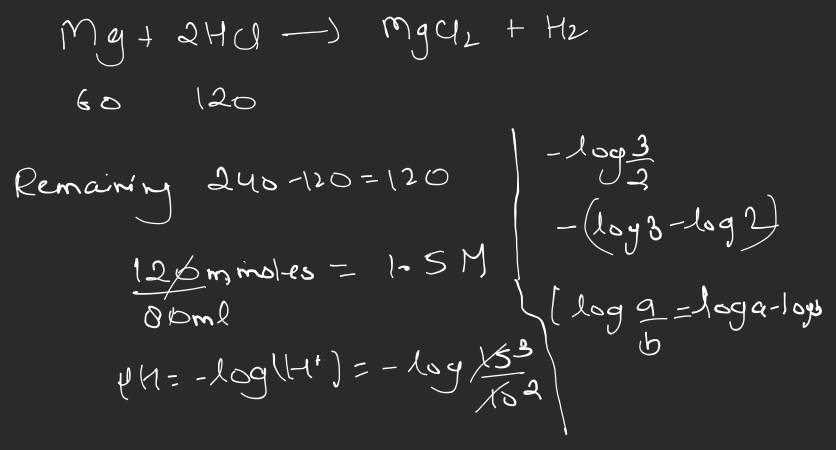 Mg + 2HCl → MgCl2 + H2
60 120
Remaining 240 - 120 = 120
120 mmoles / 80ml = 1.5 M
pH = -log(H+) = -log 15 3 / 10 2
-log 3/2
-(log 3 - log 2)
[ log a/b = log a - log b